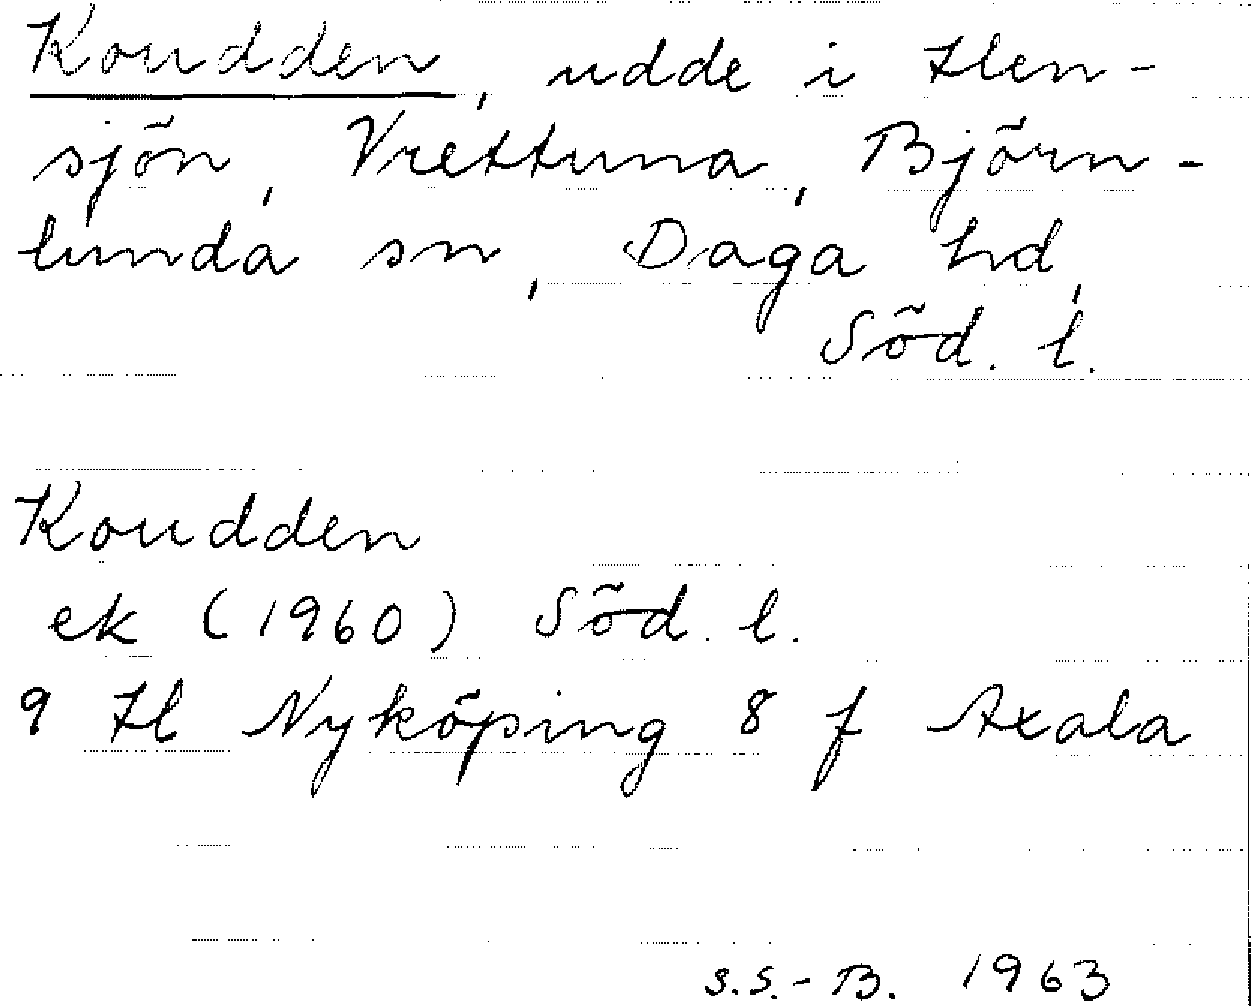 Koudden, udde i Hen-
sjön, Vrettuna, Björn-
lunda sn, Daga hd,
Söd. l.
Koudden
ek (1960) Söd. l.
9 H1 Nyköping 8 f Axala
s.s.-B. 1963